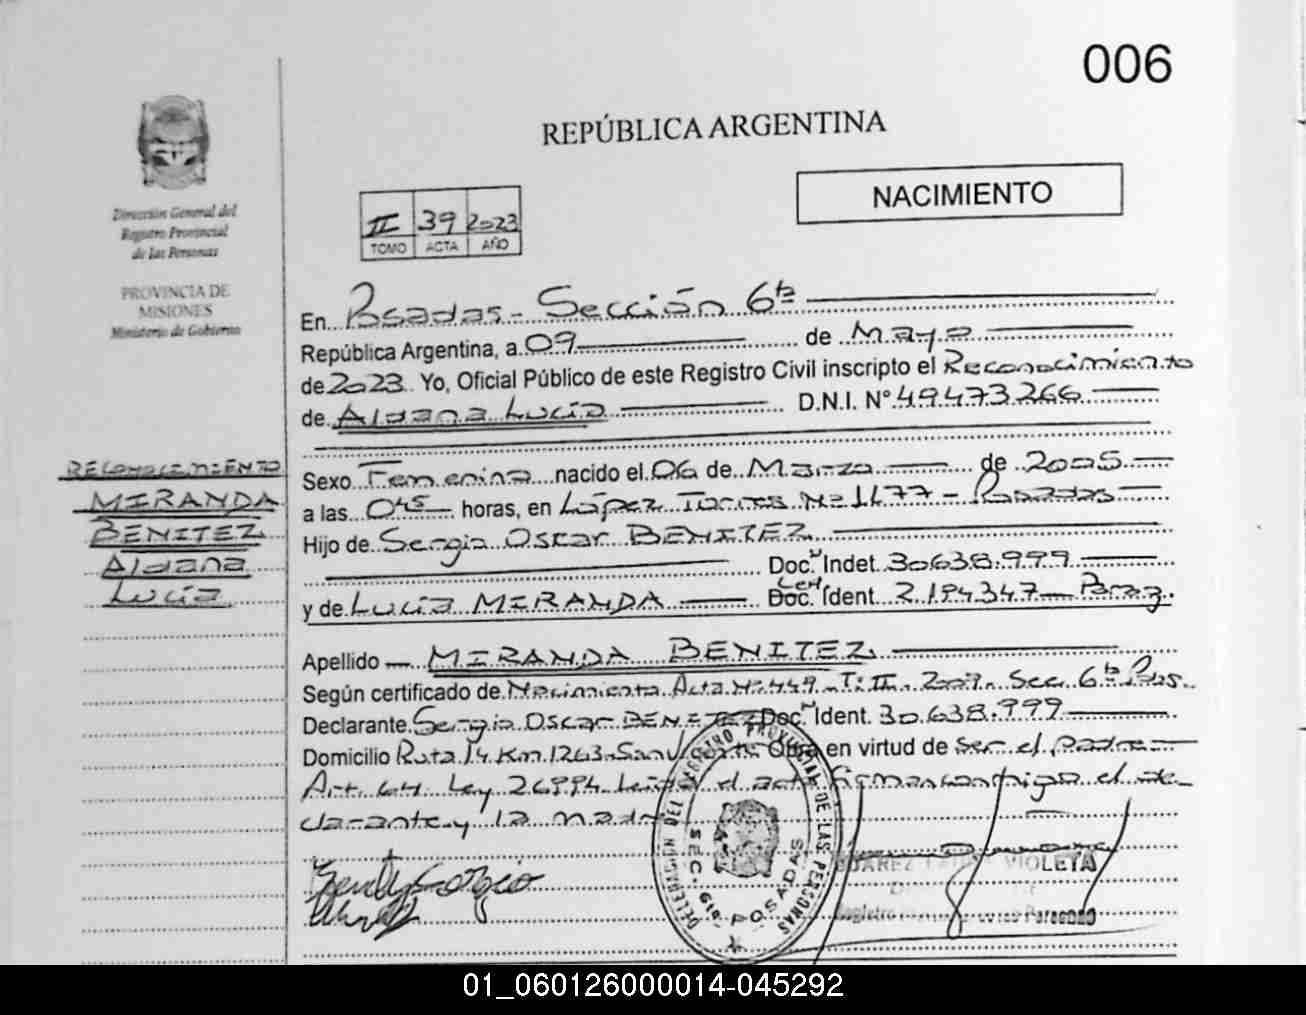 006
REPÚBLICA ARGENTINA
NACIMIENTO
Dirección General del
Registro Provincial
de las Personas
PROVINCIA DE
MISIONES
Ministerio de Gobierno
II 39 2023
TOMO ACTA AÑO
En Posadas - Sección 6ta
República Argentina, a 09 de Mayo
de 2023 Yo, Oficial Público de este Registro Civil inscripto el Reconocimiento
de Aldana Lucía D.N.I. N° 49473266
RECONOCIMIENTO
MIRANDA
BENITEZ
Aldana
Lucía
Sexo Femenino nacido el 06 de Marzo de 2005
a las 045 horas, en López Torres Nº 1177 - Posadas
Hijo de Sergio Oscar BENITEZ
Doc. Indet. 30638.999
y de Lucía MIRANDA Doc. Ident. 2.194.347 Parag.
Apellido MIRANDA BENITEZ
Según certificado de Nacimiento Acta Nº 449 - T: II - Sec 6ta Pos.
Declarante Sergio Oscar BENITEZ Doc. Ident. 30.638.999
Domicilio Ruta 14 Km 1263 - San Vicente en virtud de ser el padre
Art. 64 Ley 26994 el acta firman conmigo el de-
clarante y la madre
DELEGACIÓN DEL REGISTRO PROVINCIAL DE LAS PERSONAS
SEC. 6ta POSADAS
SUAREZ VIOLETA
Registro Personas
01_060126000014-045292